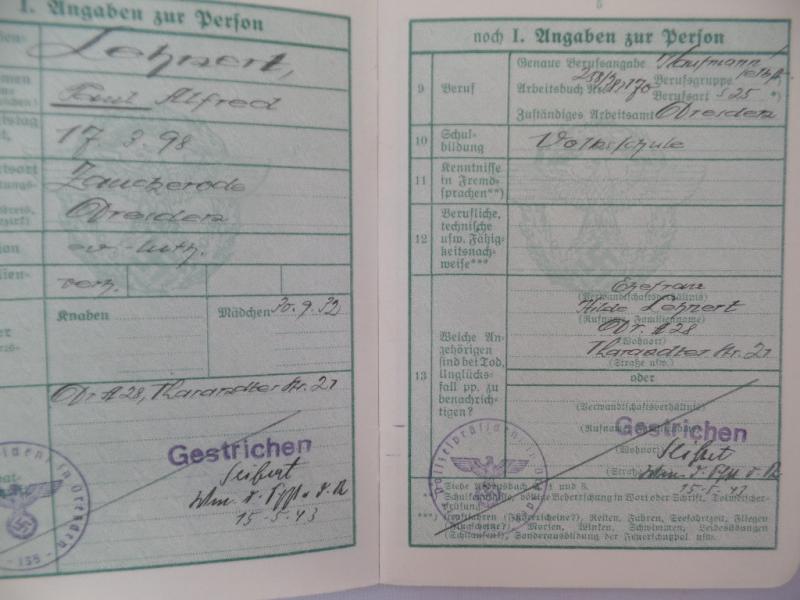 I. Angaben zur Person
Lehnert,
Paul Alfred
17 3. 98
Zauckerode
Dresden
ev.-luth.
verh.
Knaben
Mädchen 30. 9. 32
Dr. A 28, Tharandter Str. 21
Gestrichen
Seibert
15.-5. 43
noch I. Angaben zur Person
9
Beruf
Genaue Berufsangabe Kaufmann
Arbeitsbuch Nr. Berufsgruppe
Berufsart § 25 *)
Zuständiges Arbeitsamt Dresden
10
Schul-
bildung
Volksschule
11
Kenntnisse
in Fremd-
sprachen**)
12
Berufliche,
technische
usw. Fähig-
keitsnach-
weise***
13
Welche An-
gehörigen
sind bei Tod,
Unglücks-
fall pp. zu
benachrich-
tigen?
Ehefrau
(Verwandtschaftsverhältnis)
Hilde Lehnert
(Rufname, Familienname)
Dr. A 28
(Wohnort)
Tharandter Str. 21
(Straße usw.)
oder
(Verwandtschaftsverhältnis)
(Rufname, Familienname)
Gestrichen
(Wohnort)
Seibert
15.-5. 43
*) Siehe Arbeitsbuch S. 1 und 3.
**) Schulkenntnisse, völlige Beherrschung in Wort oder Schrift, Dolmetscher-
Prüfung
***) Kraftfahren (Führerscheine?), Reiten, Fahren, Seefahrtzeit, Fliegen
(Flugscheine?), Morsen, Winken, Schwimmen, Leibesübungen
(Skilaufen?), Sonderausbildung der Feuerschutzpol. usw.
Polizeipräsident in Dresden
- 158 -